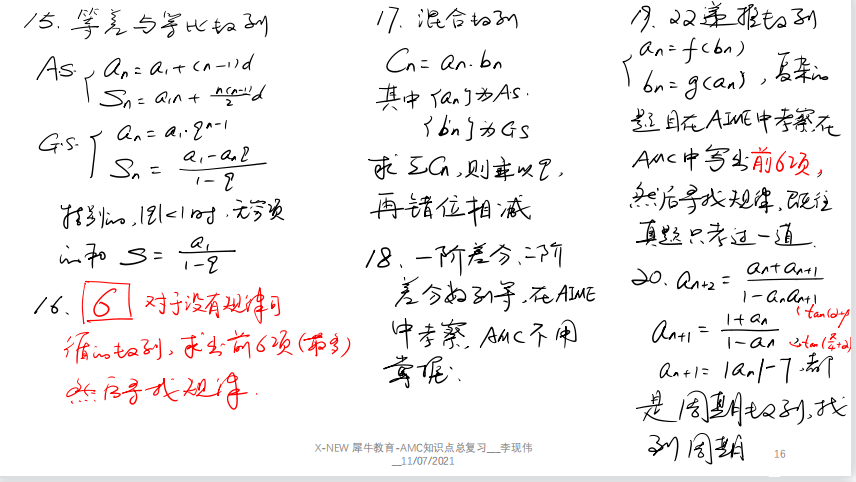 15. 等差与等比数列
A.S. { an = a1 + (n-1)d
Sn = a1n + n(n-1)/2 d
G.S. { an = a1·q^(n-1)
Sn = (a1 - anq)/(1-q)
特别的, |q|<1时, 无穷项
的和 S = a1/(1-q)
16. 6 对于没有规律可
循的数列, 求出前6项(最多)
然后寻找规律.
17. 混合数列
Cn = an·bn
其中{an}为A.S.
{bn}为GS
求ΣCn, 则乘以q,
再错位相减
18. 一阶差分、二阶
差分数列等, 在AIME
中考察, AMC不用
掌握.
19. 22递推数列
{ an = f(bn)
bn = g(an) , 复杂的
题目在AIME中考察, 在
AMC中写出前6项,
然后寻找规律, 既往
真题只考过一道.
20. an+2 = (an + an+1)/(1 - anan+1)
an+1 = (1+an)/(1-an)
an+1 = |an| - 7, 都
是周期数列, 找
到周期
X-NEW 犀牛教育-AMC知识点总复习__李现伟
__11/07/2021
16